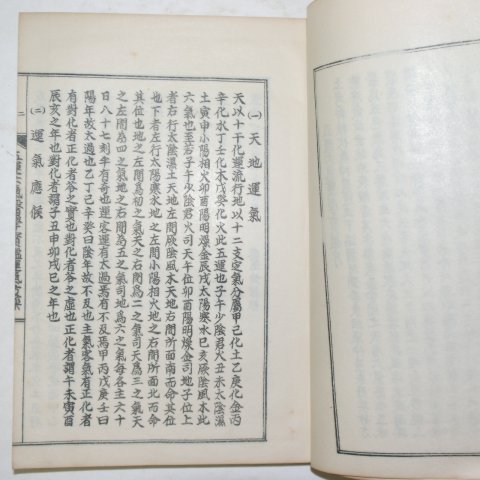 (一)天地運氣
天以十干化運流行地以十二支定氣分屬甲己化土乙庚化金丙
辛化水丁壬化木戊癸化火此五運也子午少陰君火丑未太陰濕
土寅申小陽相火卯酉陽明燥金辰戌太陽寒水巳亥厥陰風木此
六氣也至若子午少陰君火司天午位卯酉陽明燥金司地子位上
者右行太陰濕土天地左間厥陰風木天地右間所面南而命其位
也下者左行太陽寒水地之左間小陽相火地之右間所面北而命
其位也地之左間為初之氣天之右間為二之氣司天為三之氣天
之左間為四之氣地之右間為五之氣司地為六之氣每各主六十
日八十七刻半有奇也運客運有太過焉有不及焉甲丙戊庚壬曰
陽年故太過也乙丁己辛癸曰陰年故不及也主氣客氣有正化者
有對化者正化者答之實也對化者答之虛也正化者謂午未寅酉
辰亥之年也對化者謂子丑申卯戌巳之年也
(二)運氣應候
二